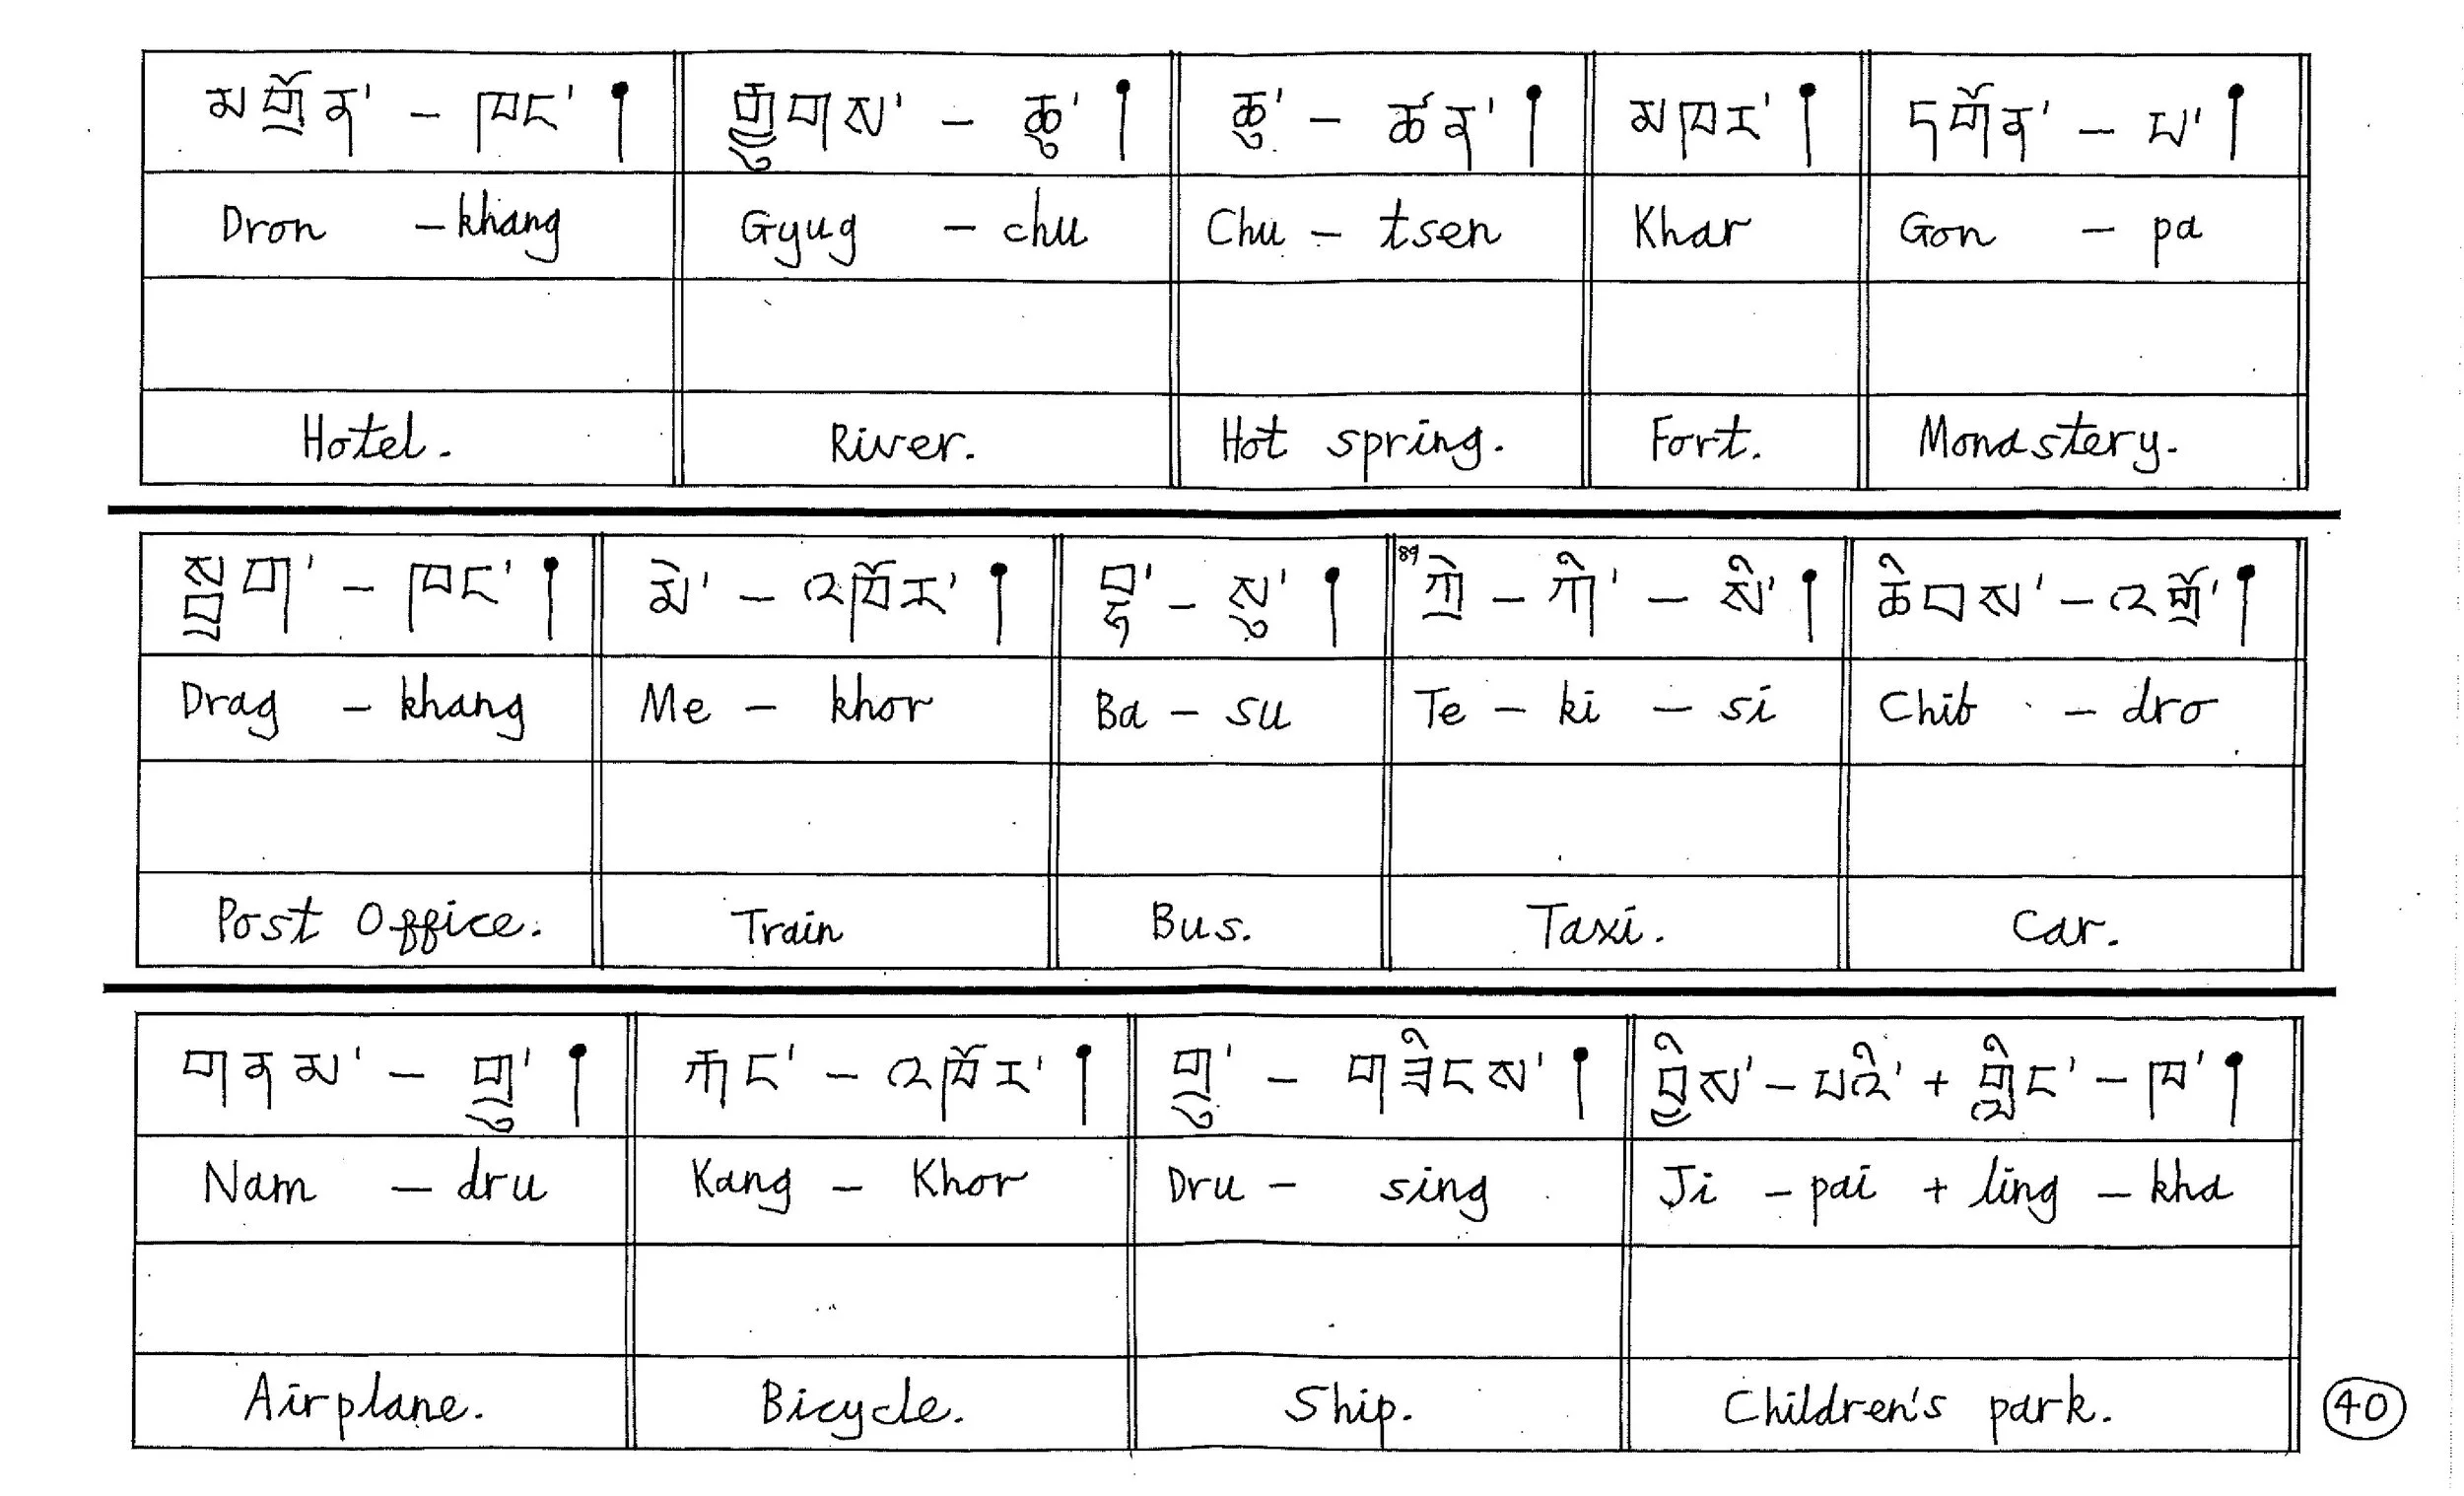 མགྲོན་ – ཁང་། རྒྱུགས་ – ཆུ་། ཆུ་ – ཚན་། མཁར་། དགོན་ – པ་།
Dron – khang Gyug – chu Chu – tsen Khar Gon – pa
Hotel. River. Hot spring. Fort. Monastery.
སྦྲག་ – ཁང་། མེ་ – འཁོར་། – སུ་། ཀྲེ – ཀི་ – སི་། ཆིབས་ – འགྲོ་།
Drag – khang Me – khor Ba – su Te – ki – si Chib – dro
Post Office. Train Bus. Taxi. Car.
གནམ་ – གྲུ་། རྐང་ – འཁོར་། གྲུ་ – གཟིངས་། བྱིས་ – པའི་ + གླིང་ – ཁ་།
Nam – dru Kang – Khor Dru – sing Ji – pai + ling – kha
Airplane. Bicycle. Ship. Children's park.
40